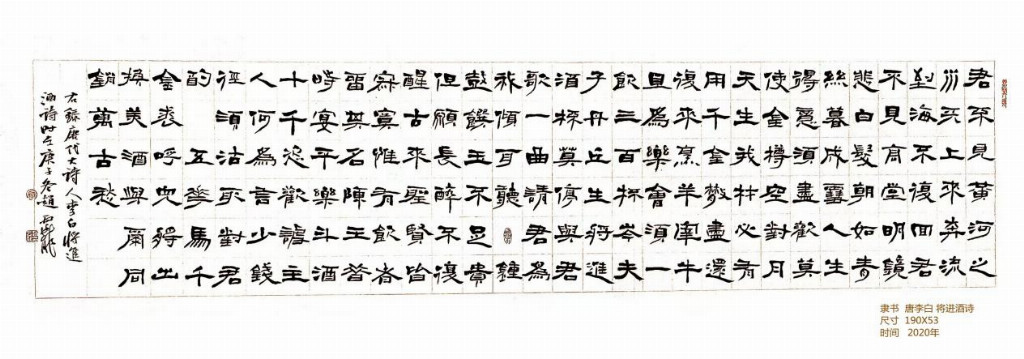 君不見黃河之
水天上來奔流
到海不復回君
不見高堂明鏡
悲白髮朝如青
絲暮成雪人生
得意須盡歡莫
使金樽空對月
天生我材必有
用千金散盡還
復來烹羊宰牛
且為樂會須一
飲三百杯岑夫
子丹丘生將進
酒杯莫停與君
歌一曲請君為
我傾耳聽鐘
鼓饌玉不足貴
但願長醉不復
醒古來聖賢皆
寂寞惟有飲者
留其名陳王昔
時宴平樂斗酒
十千恣歡謔主
人何為言少錢
徑須沽取對君
酌五花馬千
金裘呼兒將出
換美酒與爾同
銷萬古愁
右錄唐代大詩人李白將進
酒詩時在庚子冬趙
隶书 唐李白 将进酒诗
尺寸 190X53
时间 2020年